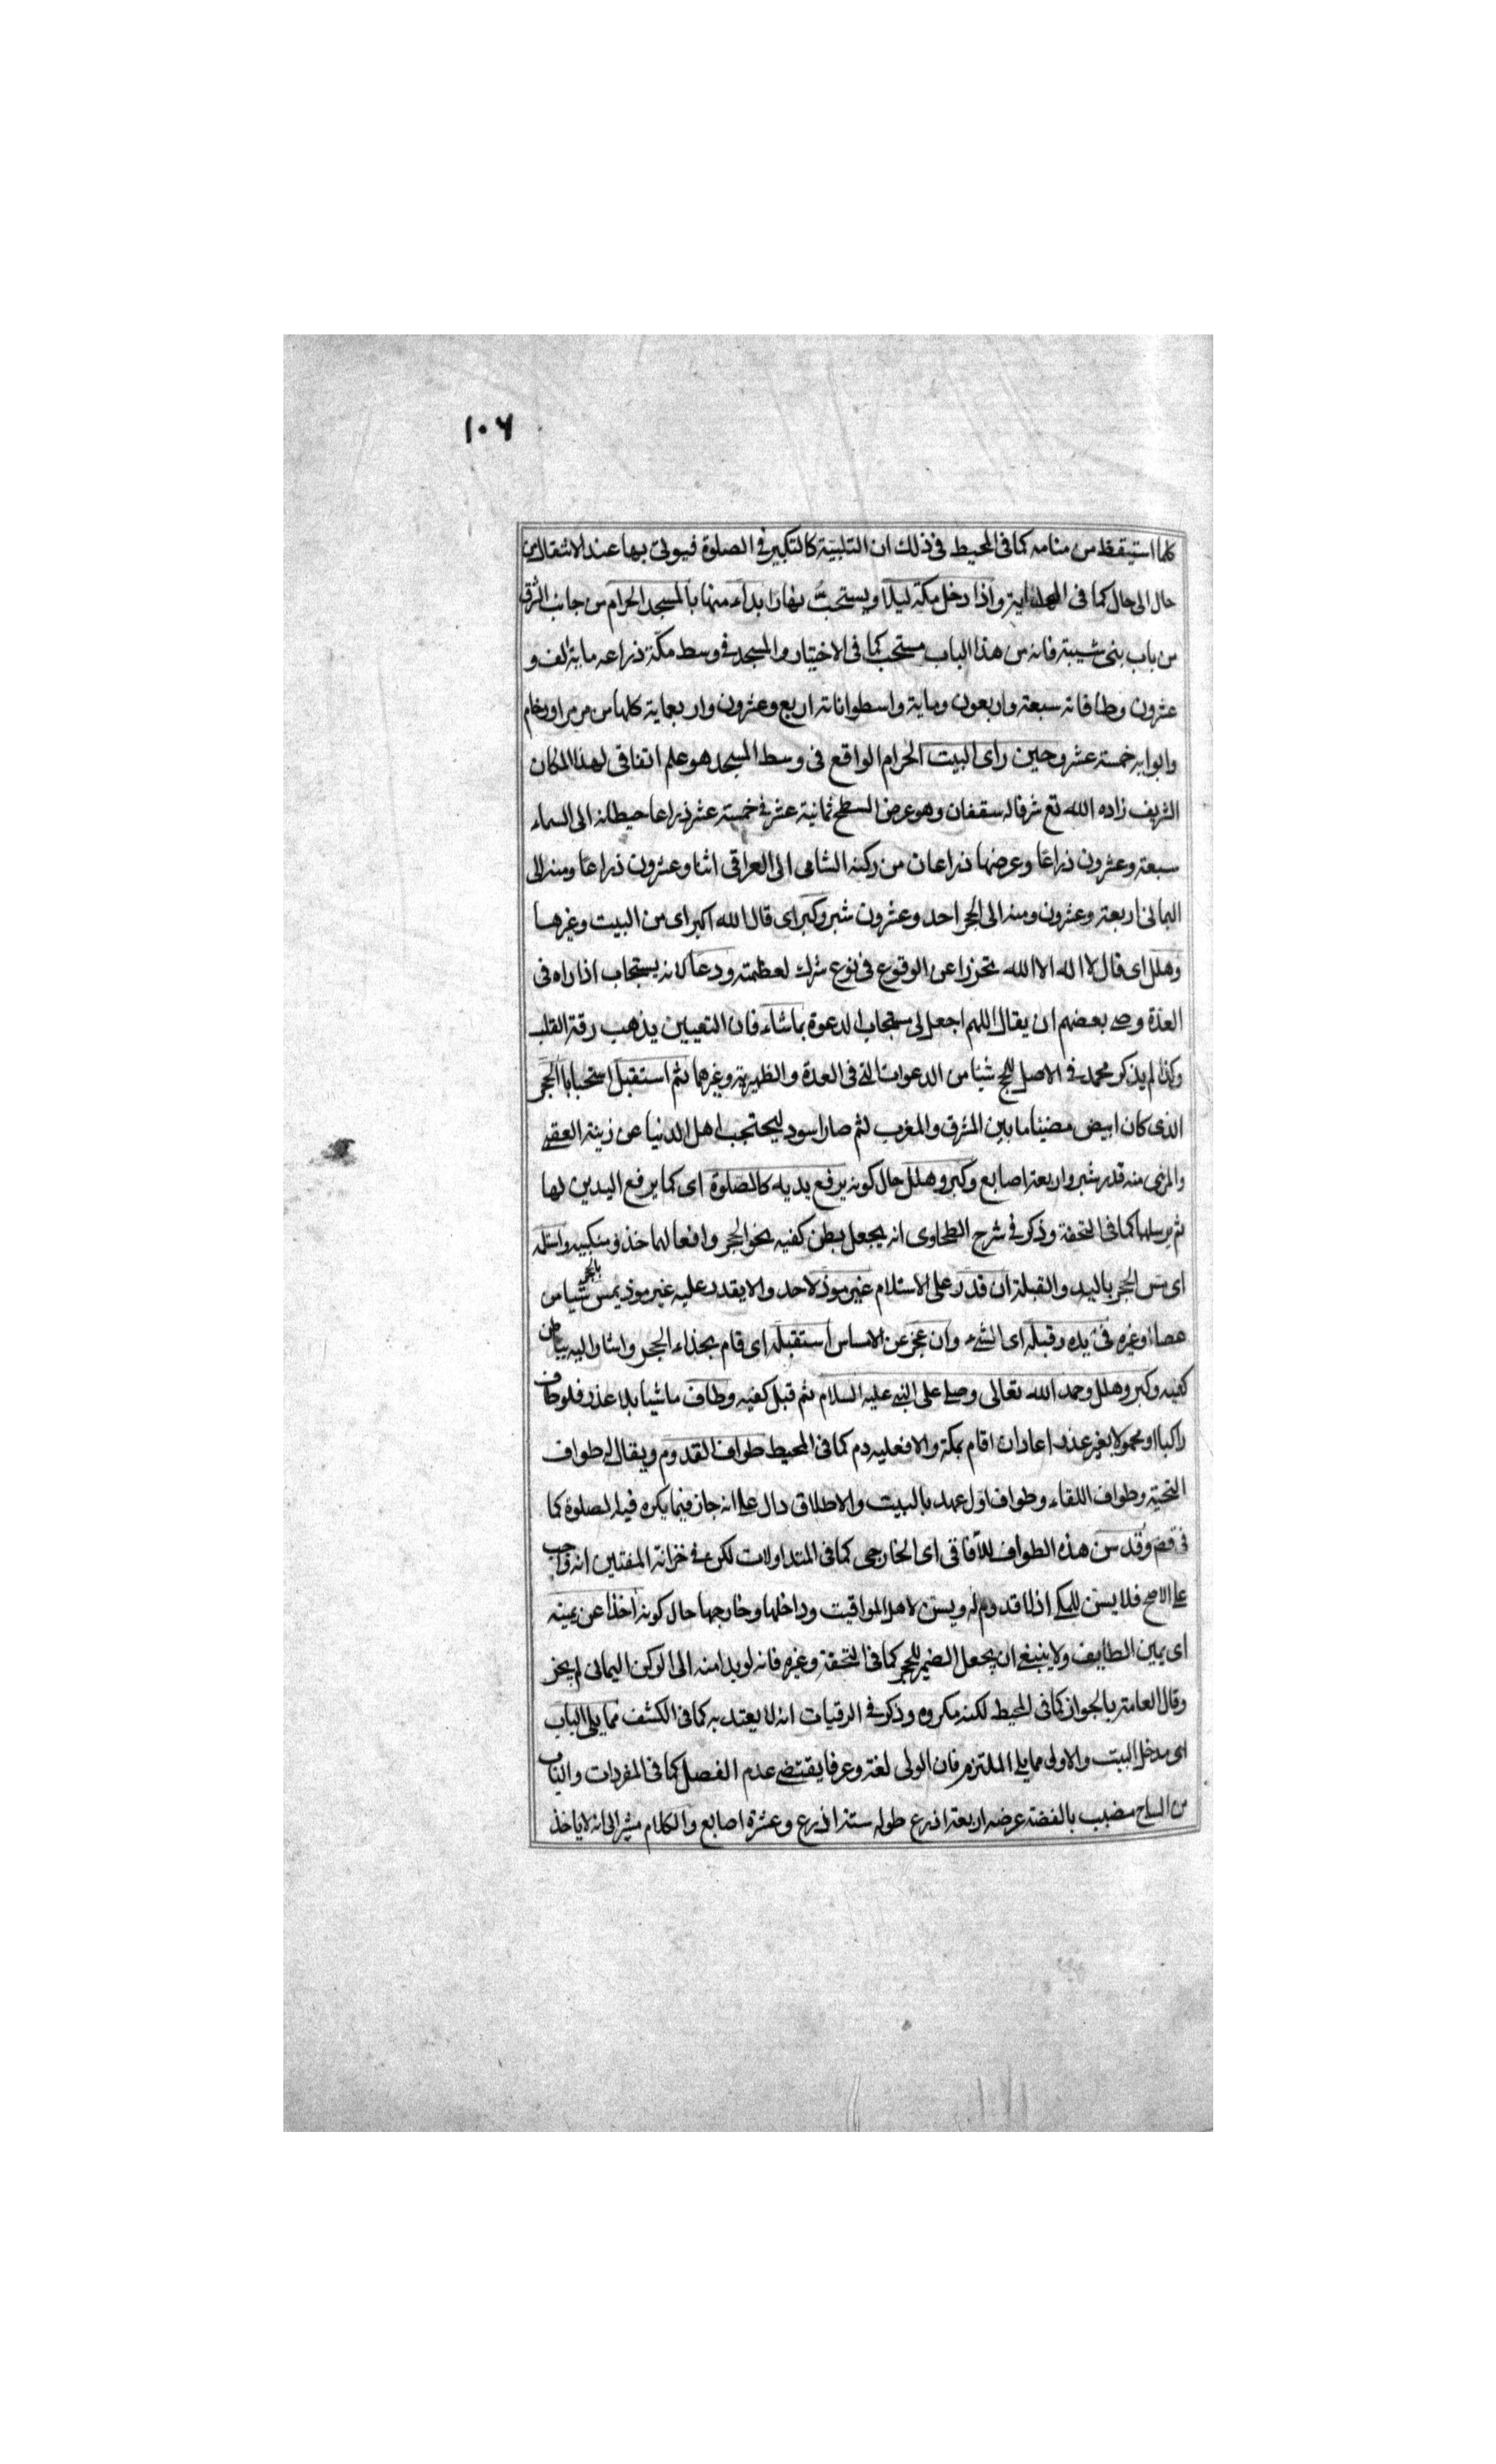 ١٠٦
كلما استيقظ من منامه كما فى المحيط فى ذلك ان التلبية كالتكبير فى الصلوة فيوتى بها عند الانتقال من
حال الى حال كما فى الهداية واذا دخل مكة ليلا ويستحب نهارا بداء منها بالمسجد الحرام من جانب الشرق
من باب بنى شيبة فانه من هذا الباب مستحب كما فى الاختيار والمسجد فى وسط مكة ذراعه ماية الف و
عشرون وطاقاته سبعة واربعون وماية واسطواناته اربع وعشرون واربعماية كلها من مرمر او رخام
وابوابه خمسة عشر وحين راى البيت الحرام الواقع فى وسط المسجد هو علم اتفاقى لهذا المكان
الشريف زاده الله تع شرفا له سقفان وهو عرض السطح ثمانية عشر فى خمسة عشر ذراعا حيطانه الى السماء
سبعة وعشرون ذراعا وعرضها ذراعان من ركنه الشامى الى العراقى اثنا وعشرون ذراعا ومنه الى
اليمانى اربعة وعشرون ومنه الى الحجر احد وعشرون شبر وكبر اى قال الله اكبر اى من البيت وغيرها
وهلل اى قال لا اله الا الله تحرزا عن الوقوع فى نوع شرك لعظمته ودعا لانه يستجاب اذا راه فى
العدة وصى بعضهم ان يقال اللهم اجعل لى مستجاب الدعوة بما شاء فان التعيين يذهب رقة القلب
وكذا لم يذكر محمد فى الاصل للحج شيئا من الدعوات التى فى العدة والظهيرية وغيرهما ثم استقبل استحبابا الحجر
الذى كان ابيض مضيئا ما بين المشرق والمغرب ثم صار اسود ليحتجب اهل الدنيا عن زينة العقبى
والمرئى منه قدر شبر واربعة اصابع وكبر وهلل حال كونه يرفع يديه كالصلوة اى كما يرفع اليدين لها
ثم يرسلهما كما فى التحفة وذكر فى شرح الطحاوى انه يجعل بطن كفيه نحو الحجر رافعا لهما حذو منكبيه واستلمه
اى مس الحجر باليد والقبلة ان قدر على الاستلام غير موذ لاحد والا يقدر عليه غير موذ يمس بالحجر شيئا من
عصا او غيره فى يده وقبله اى الشىء وان عجز عن الامساس استقبله اى قام بحذاء الحجر واشار اليه بباطن
كفيه وكبر وهلل وحمد الله تعالى وصلى على النبى عليه السلام ثم قبل كفيه وطاف ماشيا بلا عذر فلو طاف
راكبا او محمولا بغير عذر اعاد ان اقام بمكة والا فعليه دم كما فى المحيط طواف القدوم ويقال له طواف
التحية وطواف اللقاء وطواف اول عهد بالبيت والاطلاق دال على انه جاز فيما يكره فيه الصلوة كما
فى قض وقد سن هذه الطواف للآفاقى اى الخارجى كما فى المتداولات لكن فى خزانة المفتين انه واجب
على الاصح فلا يسن للمكى اذ لا قدوم له ويسن لاهل المواقيت وداخلها وخارجها حال كونه اخذا عن يمينه
اى يمين الطايف ولا ينبغى ان يجعل الضمير للحجر كما فى التحفة وغيره فانه لو بدا منه الى الركن اليمانى لم يجز
وقال العامة بالجواز كما فى المحيط لكنه مكروه وذكر فى الرقيات انه لا يعتد به كما فى الكشف مما يلى الباب
اى مدخل البيت والاولى مما يلى الملتزم فان الولى لغة وعرفا يقتضى عدم الفصل كما فى المفردات والباب
من الساج مضبب بالفضة عرضه اربعة اذرع طوله ستة اذرع وعشرة اصابع والكلام مشير الى انه لا ياخذ